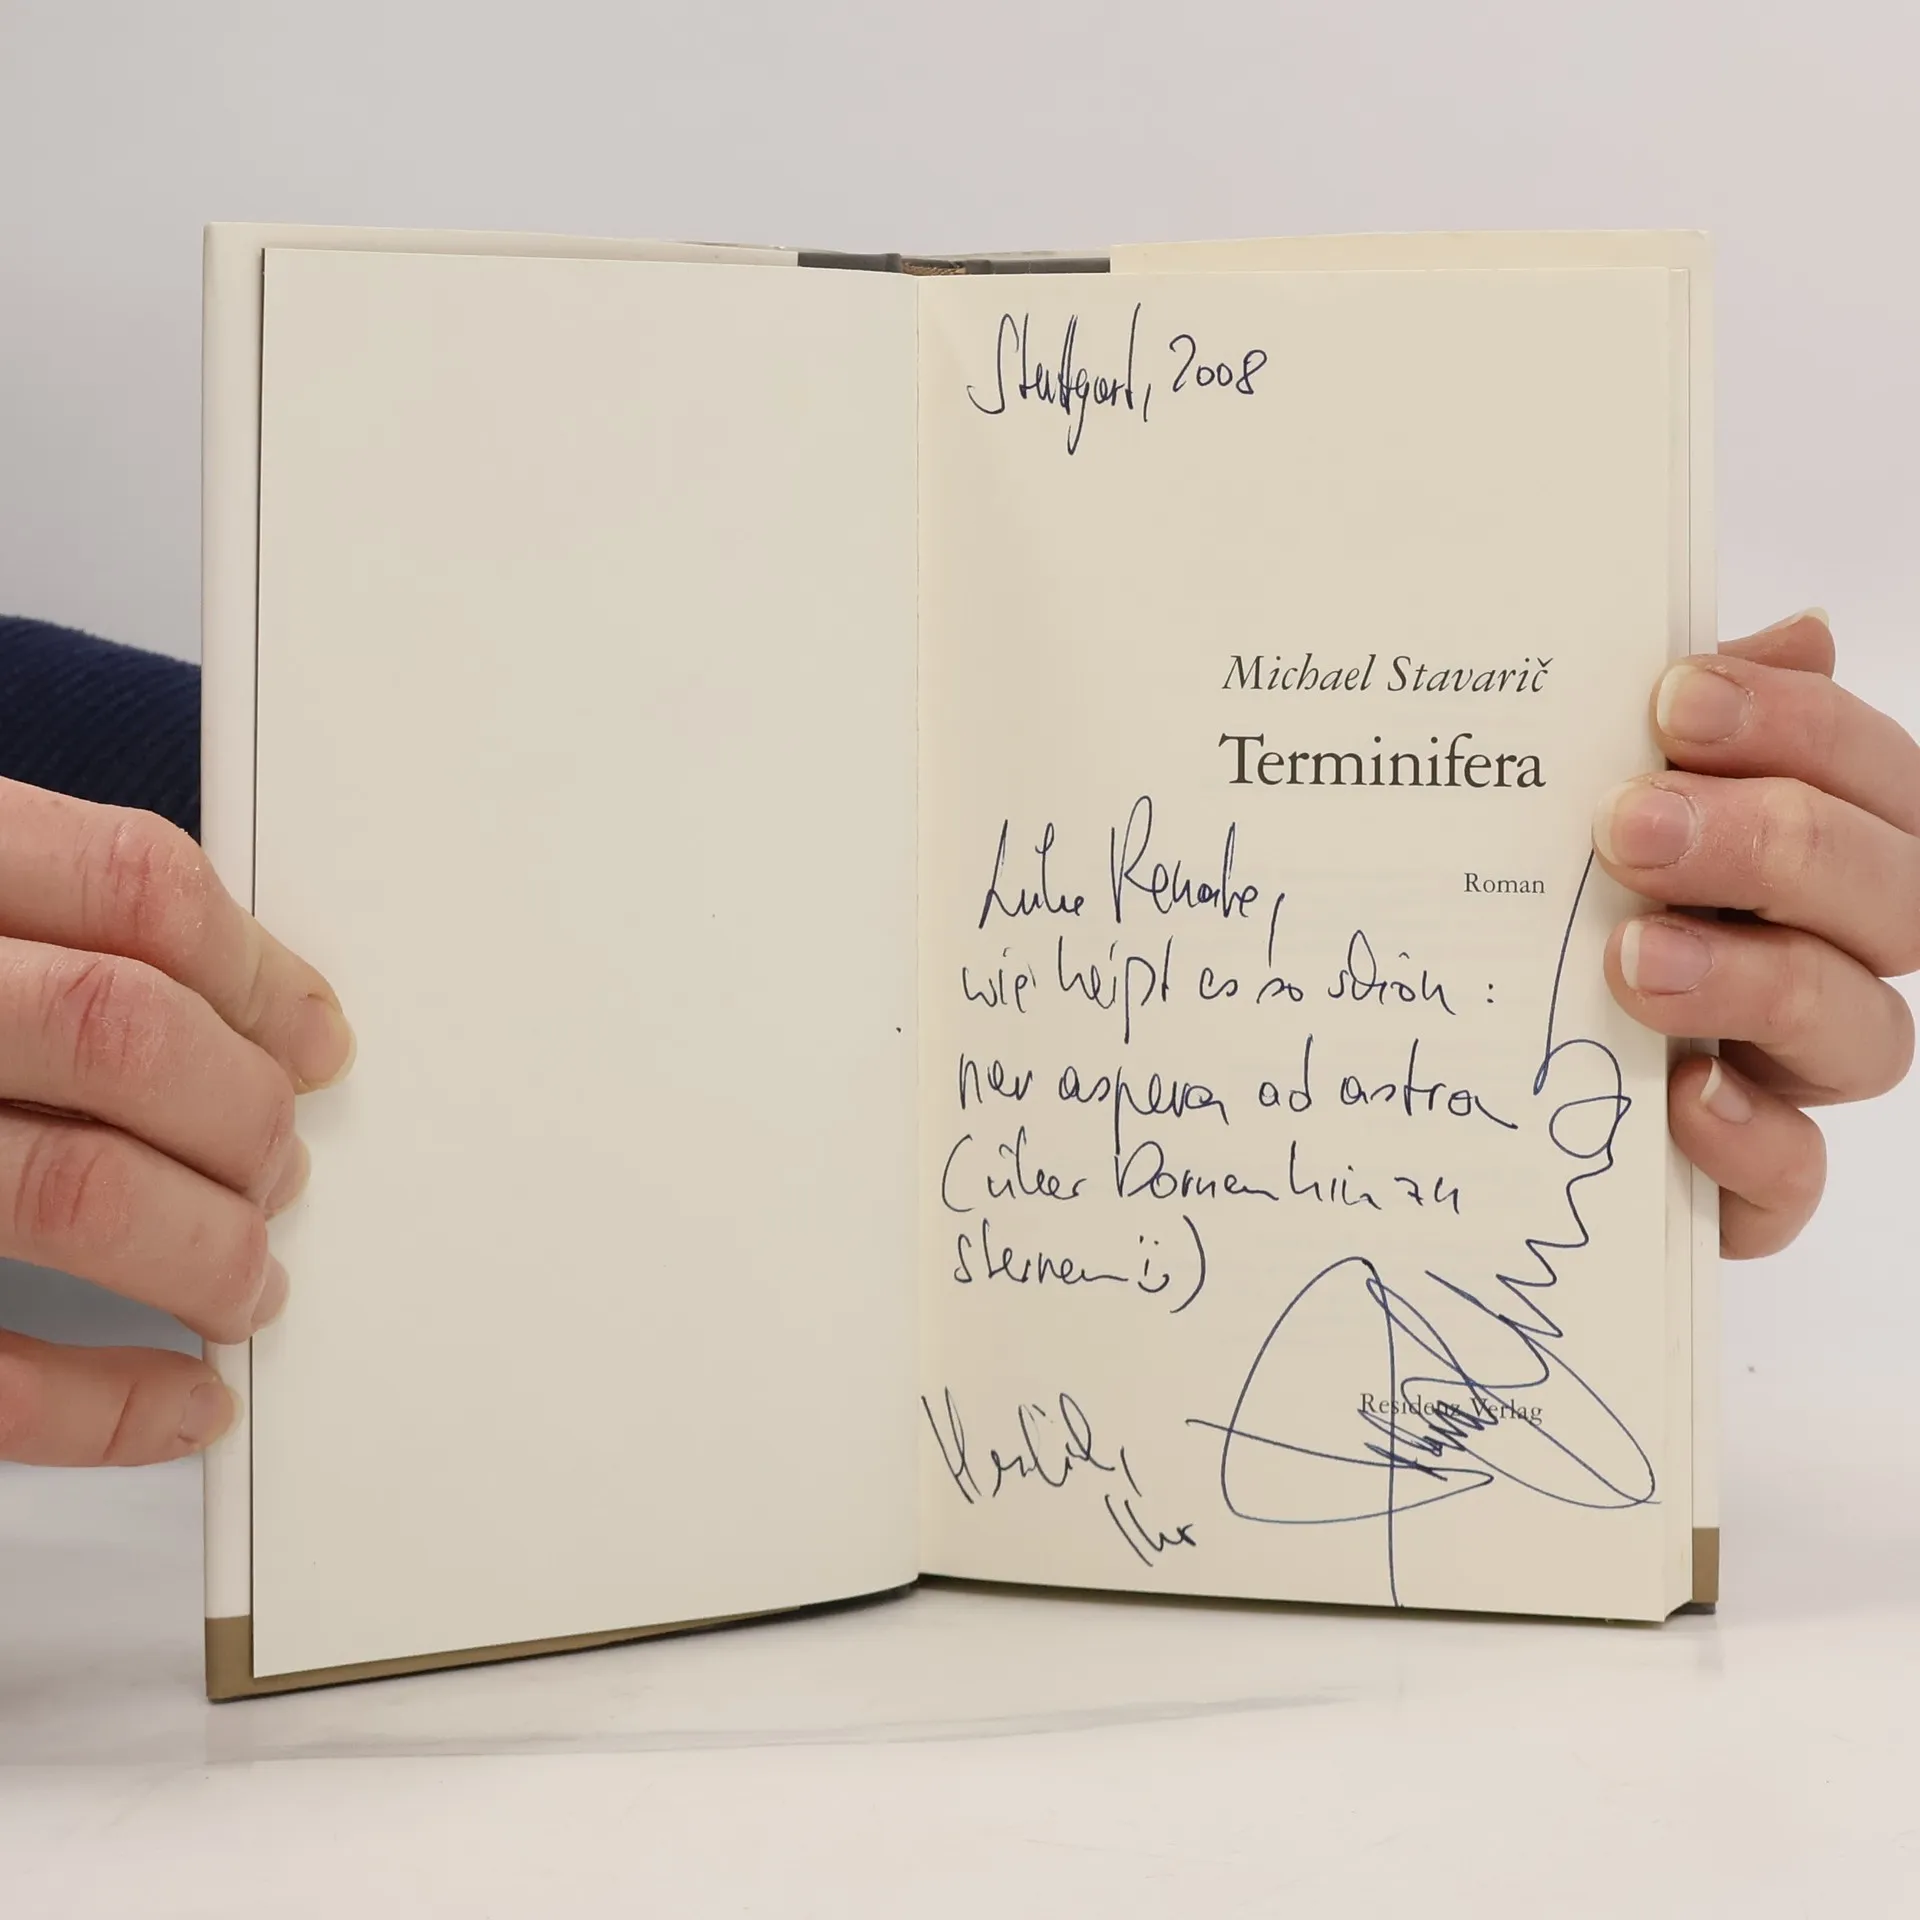 Stuttgart, 2008
Michael Stavarič
Terminifera
Roman
Liebe Renate,
wie heißt es so schön :
per aspera ad astra
(über Dornen hin zu
Sternen ü)
Residenz Verlag
Herzlich,
Ihr